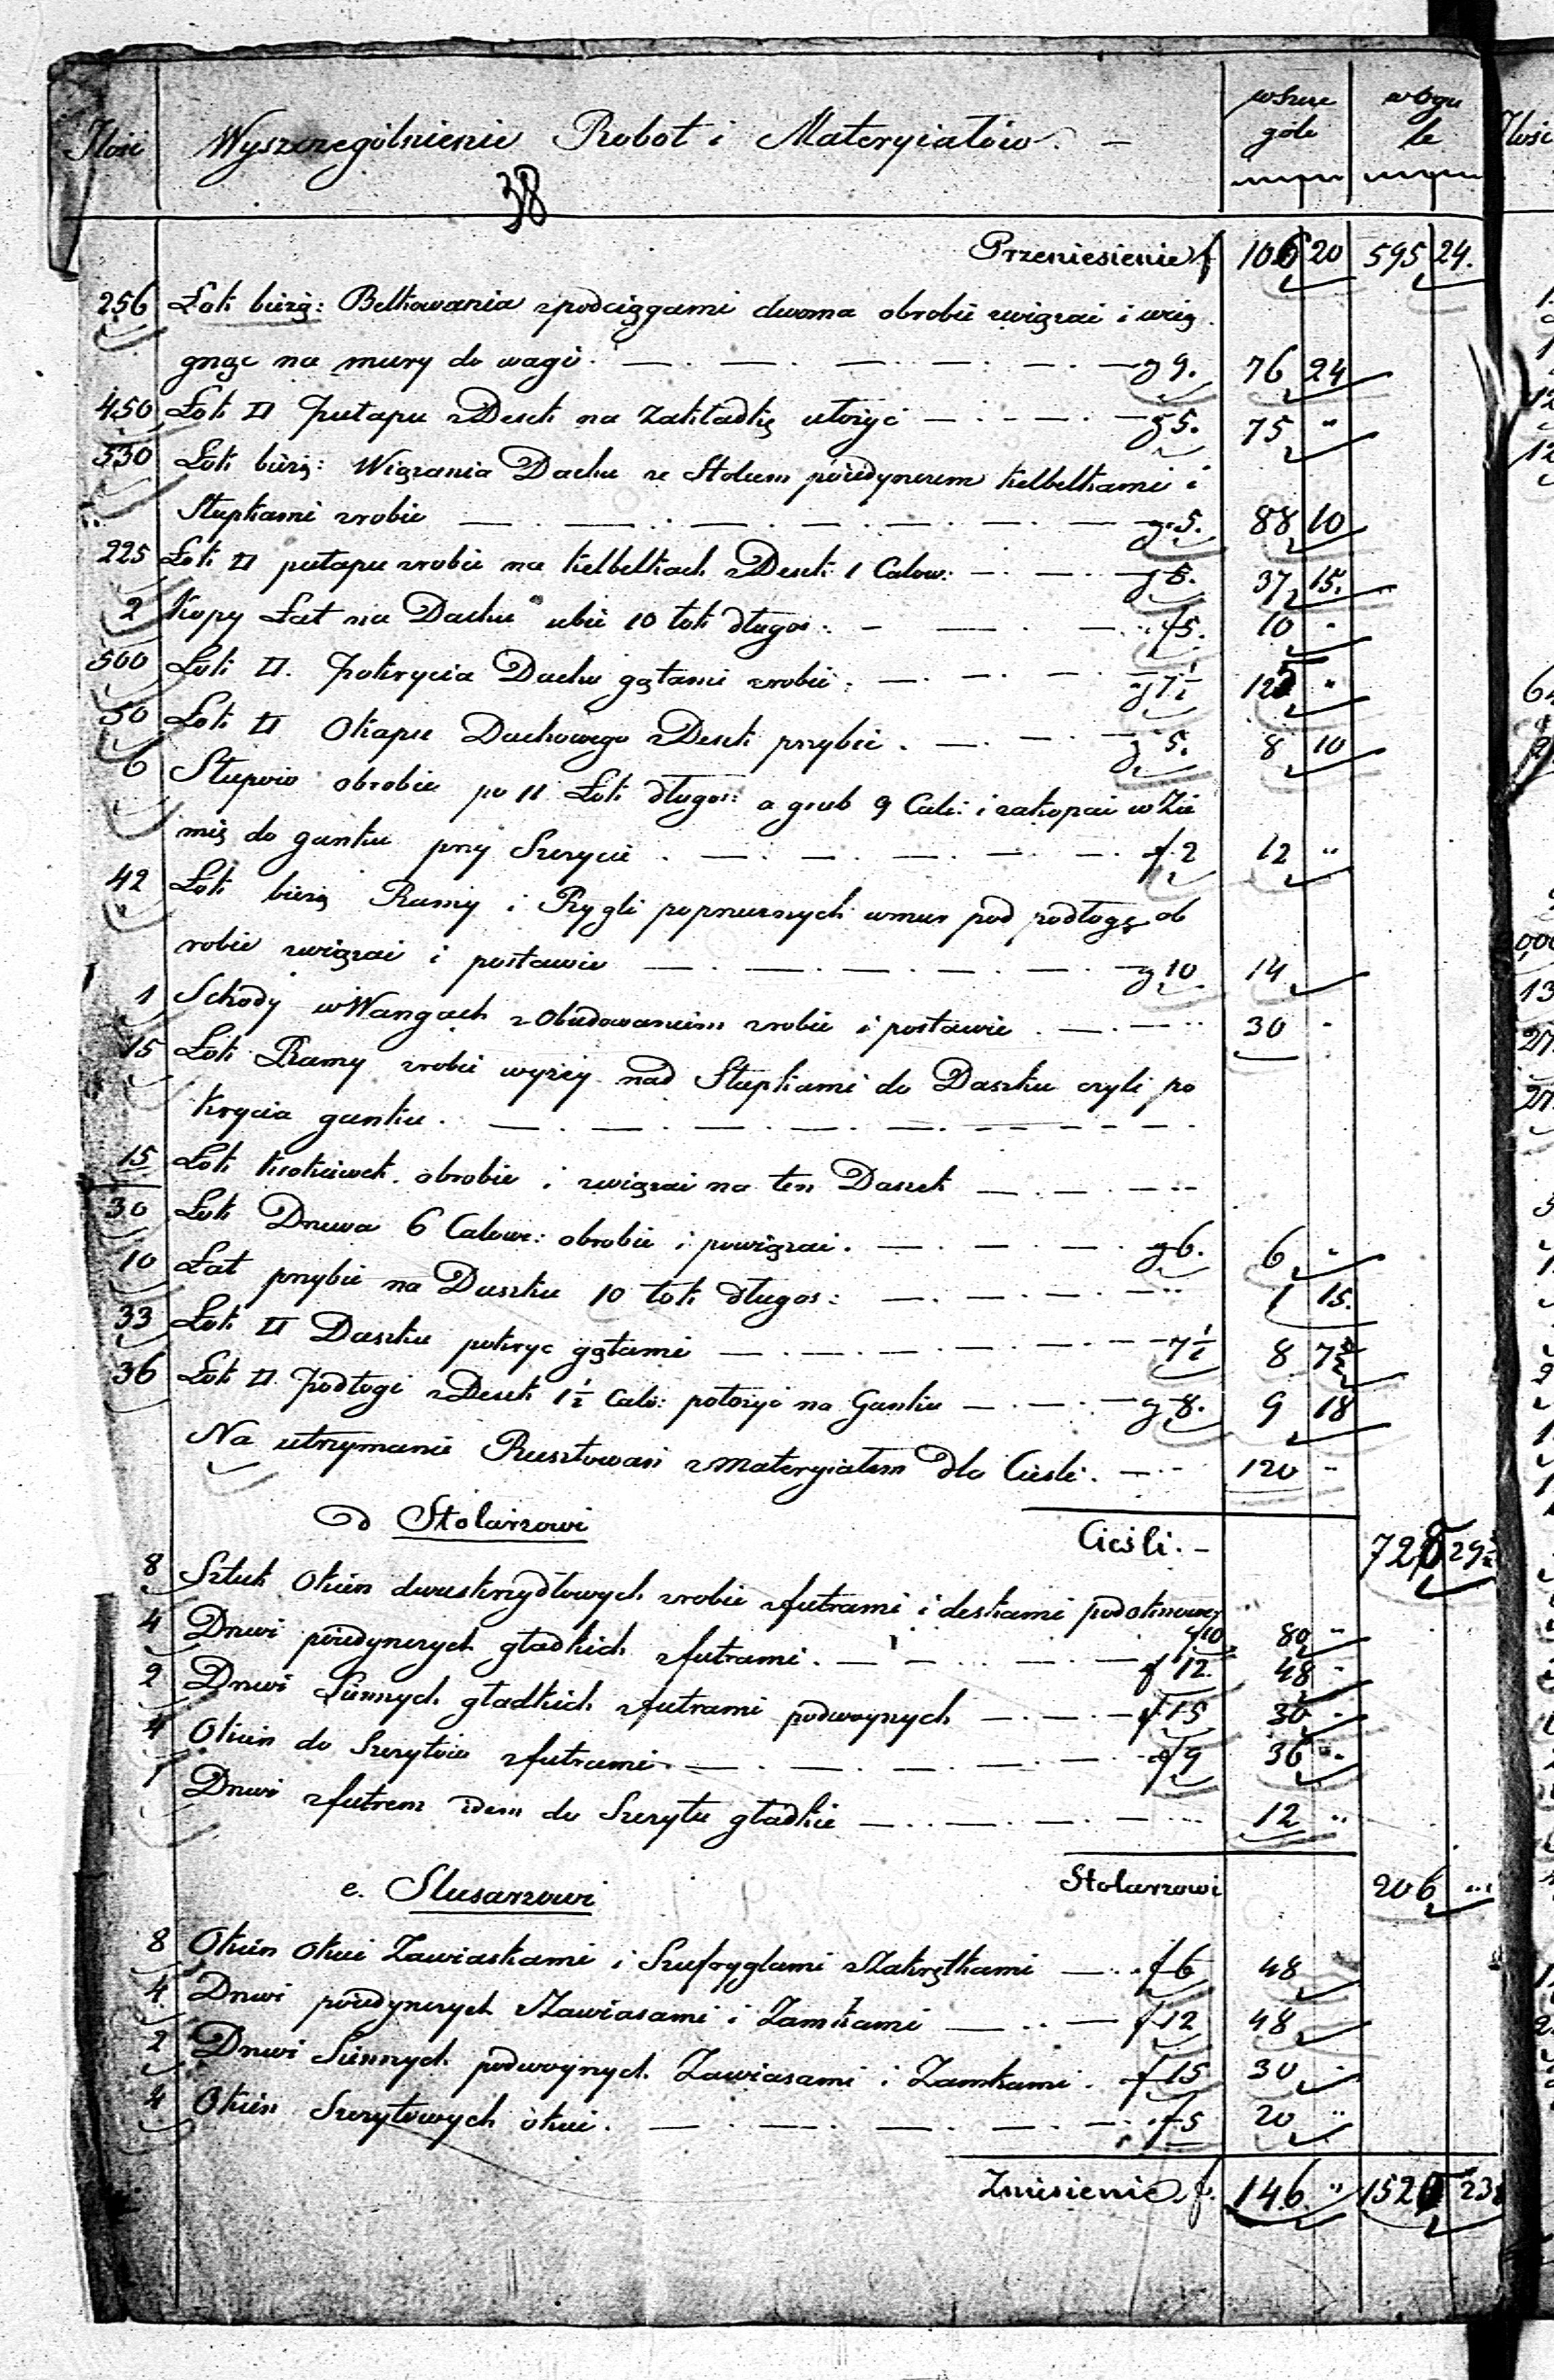 Ilość Wyszczególnienie Robot i Materyiałów. — wszcze góle w Ogu le
38
Przeniesienie f 106 20 595 24.
256 Łok bieżą: Belkowania z podciągami dwoma obrobić związać i wcią
gnąc na mury do wagi. g 9. 76 24
450 Łok □ Pułapu z Desek na Zakładkę ułożyć g 5. 75 "
530 Łok bieżą: Wiązania Dachu ze Stolcem pojedynczem kelbelkami i
Słupkami zrobić g. 5. 88 10
225 Łok □ pułapu zrobić na kelbelkach z Desek 1 Calow: g 5. 37 15.
2 Kopy Łat na Dachu ubić 10 łok długos: f 5. 10 "
500 Łok □. Pokrycia Dachu gątami zrobić: g 7½ 125 "
50 Łok □ Okapu Dachowego z Desek przybić. g 5. 8 10
6 Słupów obrobić po 11 Łok długos: a grub 9 Cali: i zakopać w Zie
mię do ganku przy Szczycie. f. 2 12 "
42 Łok bieżą Ramy i Rygli poprzecznych w mur pod podłogę ob
robić związać i postawić g 10 14
1 Schody w Wangach z Obudowaniem zrobić i postawić. 30 "
15 Łok Ramy zrobić wyżéy nad Słupkami do Daszku czyli po
krycia ganku.
15 Łok Krokiewek. obrobić i związać na ten Daszek
30 Łok Drzewa 6 Calowe: obrobić i powiązać. g 6. 6 "
10 Łat przybić na Daszku 10 łok długos: 1 15.
33 Łok □ Daszku pokryc gątami 7½ 8 7½
36 Łok □ Podłogi z Desek 1½ Calo: położyć na Ganku g 8. 9 18
Na utrzymanie Rusztowań z materyiałem dla Cieśli. 120 "
d Stolarzowi Cieśli. — 725 29½
8 Sztuk Okien dwuskrzydłowych zrobić z futrami i deskami podokiennemi
f 10 80 "
4 Drzwi pojedynczych gładkich z futrami. f 12. 48 "
2 Drzwi Siennych gładkich z futrami podwoynych f 15 30 "
4 Okien do Szczytów z futrami. f 9 36 "
1 Drzwi z futrem idem do Szczytu gładkie 12 "
e. Slusarzowi Stolarzowi 206 "
8 Okien Okuć Zawiaskami i Szufryglami z Zakrętkami f 6 48 "
4 Drzwi pojedynczych z Zawiasami i Zamkami f 12 48 "
2 Drzwi Siennych podwoynych. Zawiasami i Zamkami. f 15 30 "
4 Okien Szczytowych okuć. f 5 20 "
Zniesienie f. 146. " 1528 23